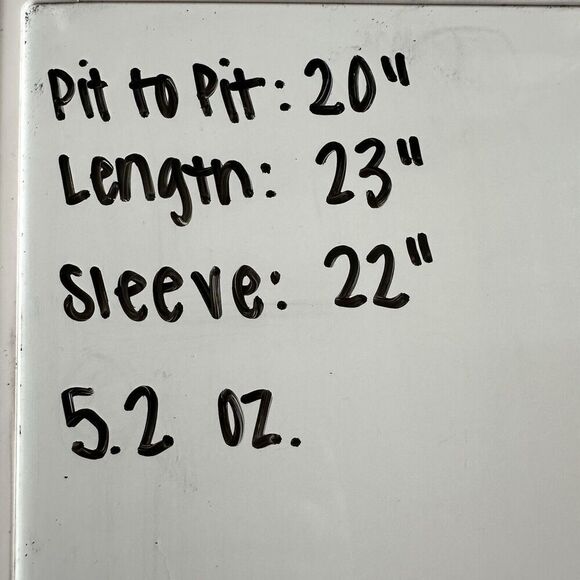 Pit to Pit: 20"
Length: 23"
Sleeve: 22"
5.2 oz.